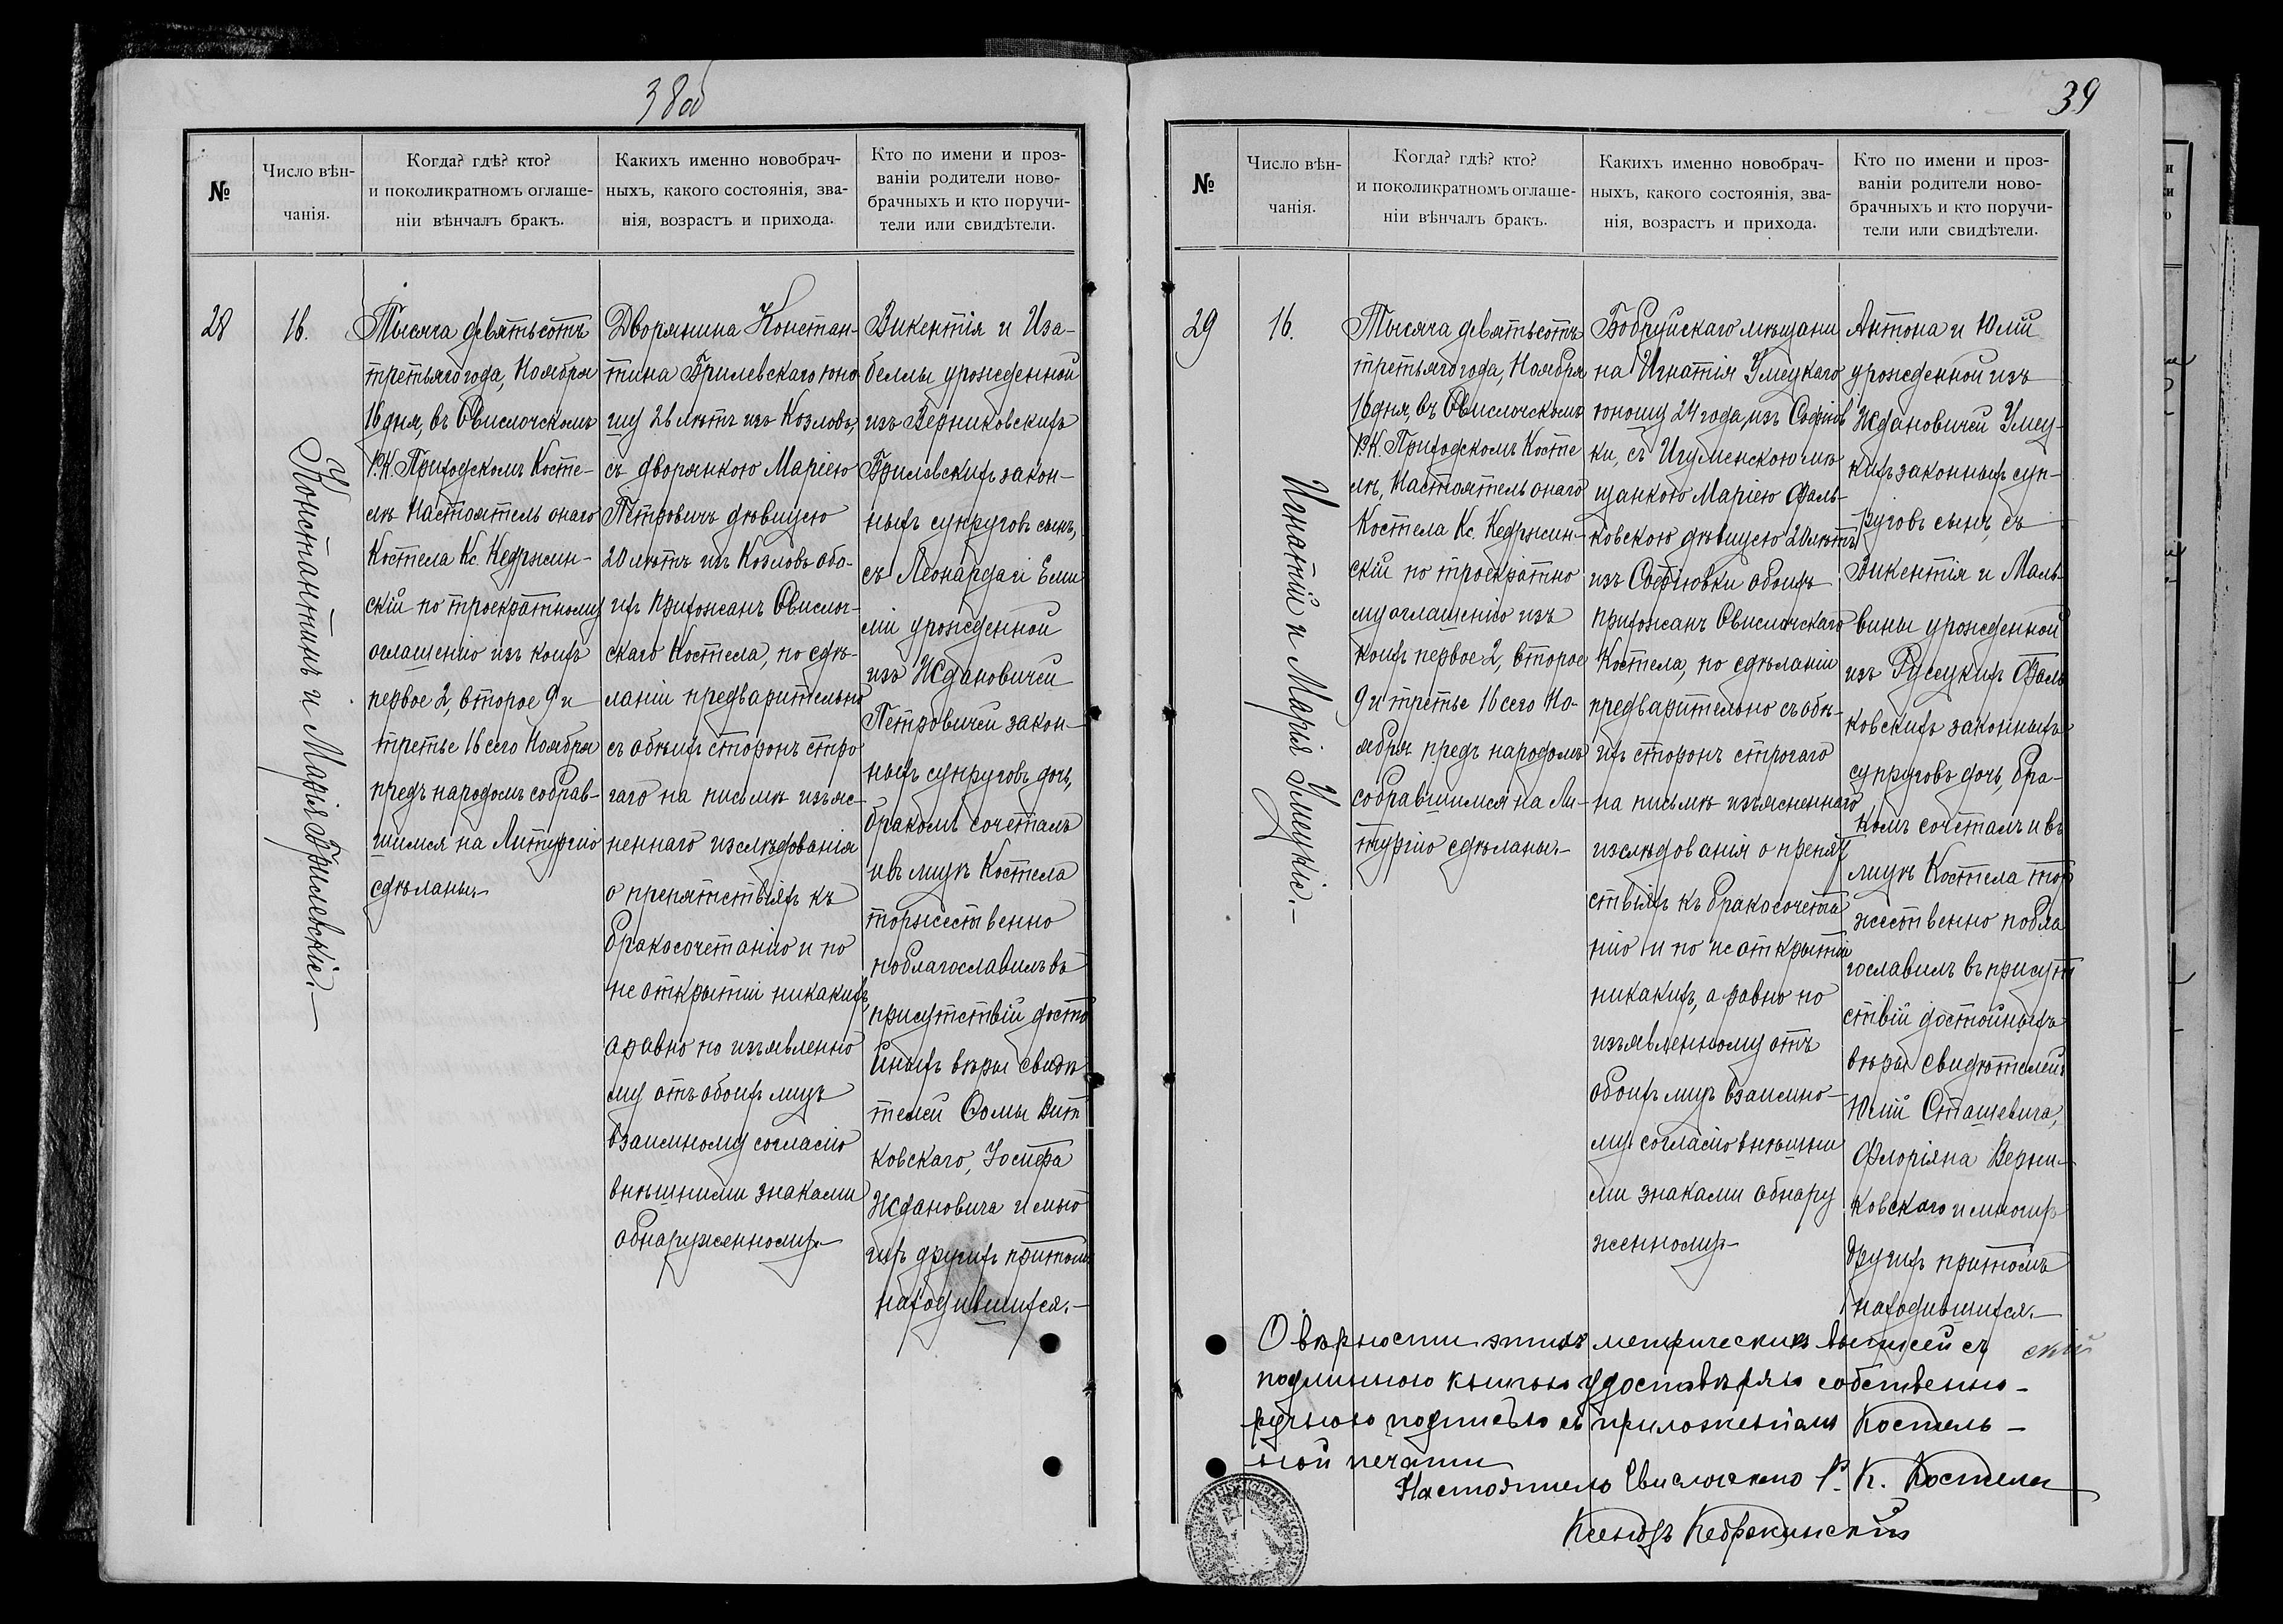 38об
№
Число вѣн-
чанія.
Когда? гдѣ? кто?
и поколикратномъ оглаше-
ніи вѣнчалъ бракъ.
Какихъ именно новобрач-
ныхъ, какого состоянія, зва-
нія, возрастъ и прихода.
Кто по имени и проз-
ваніи родители ново-
брачныхъ и кто поручи-
тели или свидѣтели.
28
16.
Константинъ и Марія Брилевскіе.—
Тысяча девятьсотъ
третьяго года, Ноября
16 дня, въ Свислочскомъ
Р.К. Приходскомъ Косте-
лѣ Настоятель онаго
Костела Кс. Кедржин-
скій по троекратному
оглашенію изъ коихъ
первое 2, второе 9 и
третье 16 сего Ноября
предъ народомъ собрав-
шимся на Литургію
сдѣланы.—
Дворянина Констан-
тина Брилевскаго юно
шу 26 лѣтъ изъ Козловъ,
съ дворянкою Маріею
Петровичъ дѣвицею
20 лѣтъ изъ Козловъ обо-
ихъ прихожанъ Свислоч-
скаго Костела, по сдѣ-
ланіи предварительно
съ обѣихъ сторонъ стро
гаго на письмѣ изъяс-
неннаго изслѣдованія
о препятствіяхъ къ
бракосочетанію и по
не открытіи никакихъ,
а равно по изъявленно
му отъ обоихъ лицъ
взаимному согласію
внѣшними знаками
обнаруженному.—
Викентія и Иза-
беллы урожденной
изъ Верниковскихъ
Брилевскихъ закон-
ныхъ супруговъ сынъ,
съ Леонарда и Еми
ліи урожденной
изъ Ждановичей
Петровичей закон-
ныхъ супруговъ дочь,
бракомъ сочеталъ
и въ лицѣ Костела
торжественно
поблагославилъ въ
присутствіи досто
йныхъ вѣры свидѣ
телей Ѳомы Вит
ковскаго, Іосифа
Ждановича и мно
гихъ другихъ притомъ
находившихся.—
39
№
Число вѣн-
чанія.
Когда? гдѣ? кто?
и поколикратномъ оглаше-
ніи вѣнчалъ бракъ.
Какихъ именно новобрач-
ныхъ, какого состоянія, зва-
нія, возрастъ и прихода.
Кто по имени и проз-
ваніи родители ново-
брачныхъ и кто поручи-
тели или свидѣтели.
29
16.
Игнатій и Марія Умецкіе.—
Тысяча девятьсотъ
третьяго года, Ноября
16 дня, въ Свислочскомъ
Р.К. Приходскомъ Косте
лѣ, Настоятель онаго
Костела Кс. Кедржин-
скій по троекратно
му оглашенію изъ
коихъ первое 2, второе
9 и третье 16 сего Но-
ября предъ народомъ
собравшимся на Ли-
тургію сдѣланы.—
Бобруйскаго мѣщани
на Игнатія Умецкаго
юношу 24 года, изъ Софіюв
ки, съ Игуменскою мѣ
щанкою Маріею Фаль-
ковскою дѣвицею 20 лѣтъ
изъ Софіювки обоихъ
прихожанъ Свислочскаго
Костела, по сдѣланіи
предварительно съ обѣ-
ихъ сторонъ строгаго
на письмѣ изъясненнаго
изслѣдованія о препят
ствіяхъ къ бракосочета
нію и по не открытіи
никакихъ, а равно по
изъявленному отъ
обоихъ лицъ взаимно-
му согласію внѣшни
ми знаками обнару
женному.—
Антона и Юліи
урожденной изъ
Ждановичей Умец-
кихъ законныхъ суп-
руговъ сынъ, съ
Викентія и Маль-
вины урожденной
изъ Русецкихъ Фаль
ковскихъ законныхъ
супруговъ дочь, бра-
комъ сочеталъ и въ
лицѣ Костела тор
жественно побла
гославилъ въ присут
ствіи достойныхъ
вѣры свидѣтелей:
Юлія Сташевича,
Флоріяна Верни-
ковскаго и многихъ
другихъ притомъ
находившихся.—
О вѣрности этихъ метрическихъ выписей съ
подлинною книгою удостовѣряю собственно-
ручною подписью съ приложеніемъ Костель-
ной печати
Настоятель Свислочскаго Р. К. Костела
Ксендзъ Кедржинскій